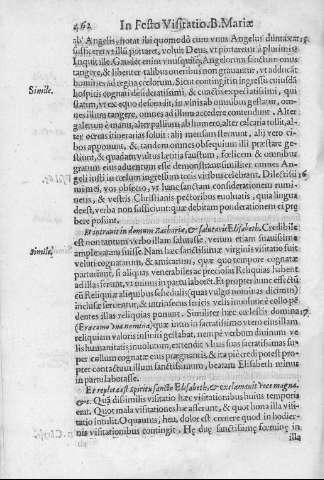 462 In Festo Visitatio. B. Mariæ
ab Angelis, notat ibi quomodo cum unus Angelus
sufficeret ut illi portaret, voluit Deus, ut portaretur à pluribus
Inquit ille. Gaudet enim unusquisque Angelorum sanctum onus
tangere, & libenter talibus oneribus non gravantur, ut adducāt
homines ad regna cælorum. Sicut contingit in ingressu cuiusdā
Simile. hospitis cognati desideratissimi, & charissimi expectatissimi, qui
statim, ut ex equo descendit, in vinis ab omnibus gestatur, om-
nes illum tangere, omnes ad illum accedere contendunt. Alter
galerum è manu, alter pallium ab humero, alter calcaria tollit, al-
ter ocreas inferiores soluit: alij mensam sternunt, alij vero ci-
bos apponunt, & tandem omnes obsequium illi præstare ge-
stiunt, &
gratum eius aduentum esse demonstrant: similiter omnes An-
geli iusti in cælum ingressum totis viribus celebrant. Dilectissi 16
mi mei, vos obsecro, ut hunc sanctam considerationem rumi-
netis, & vestris Christianis pectoribus moluatis, quia lingua
deest, verba non sufficiunt quæ debitam ponderationem ei præ
bere possint.
Et intravit in domum Zachariæ, & salutavit Elisabeth. Credibile
est non tantum verbo illam salutasse, verum etiam suavissime
Simile. amplexatam fuisse. Nam hæc sanctissimæ virginis visitatio fuit
veluti cognatarum, & amicarum, quæ quo tempore cognatæ
parturiunt, si aliquas venerabiles ac preciosas Reliquias habent
ad illas ferunt, ut minus in partu laborēt. Et propter hunc effectū
cū Reliquiæ aliquibus schedulis (quas vulgo nominas dicimus)
inclusæ serentur, & intrinsecus iniectis velis involutæ è collo pē
dentes illas reliquias ponunt. Similiter hæc cælestis domina 17.
(Era como una nomina) quæ intus in sacratissimo vtero eius illam
reliquiam valoris infiniti gestabat, nempe verbum divinum ve
lis humanitatis involutum, extendit ulnus suas sacratissimas su
per collum cognatæ eius prægnantis, & ita piè credi potest pro-
pter contactum illum sanctissimum, beatam Elisabeth minus
in partu laborasse.
Et repleta est Spiritu sancto Elisabeth, & exclamavit voce magna,
&c. Quā dissimilis visitatio hæc visitationibus huius temporis
erat. Quot mala visitationes hæ afferunt, & quot bona illa visi-
tatio intulit. O quantus, heu, dolor est credere quod in hodier-
nis visitationibus contingit. Hę duę sanctissimę fœminę in
illa